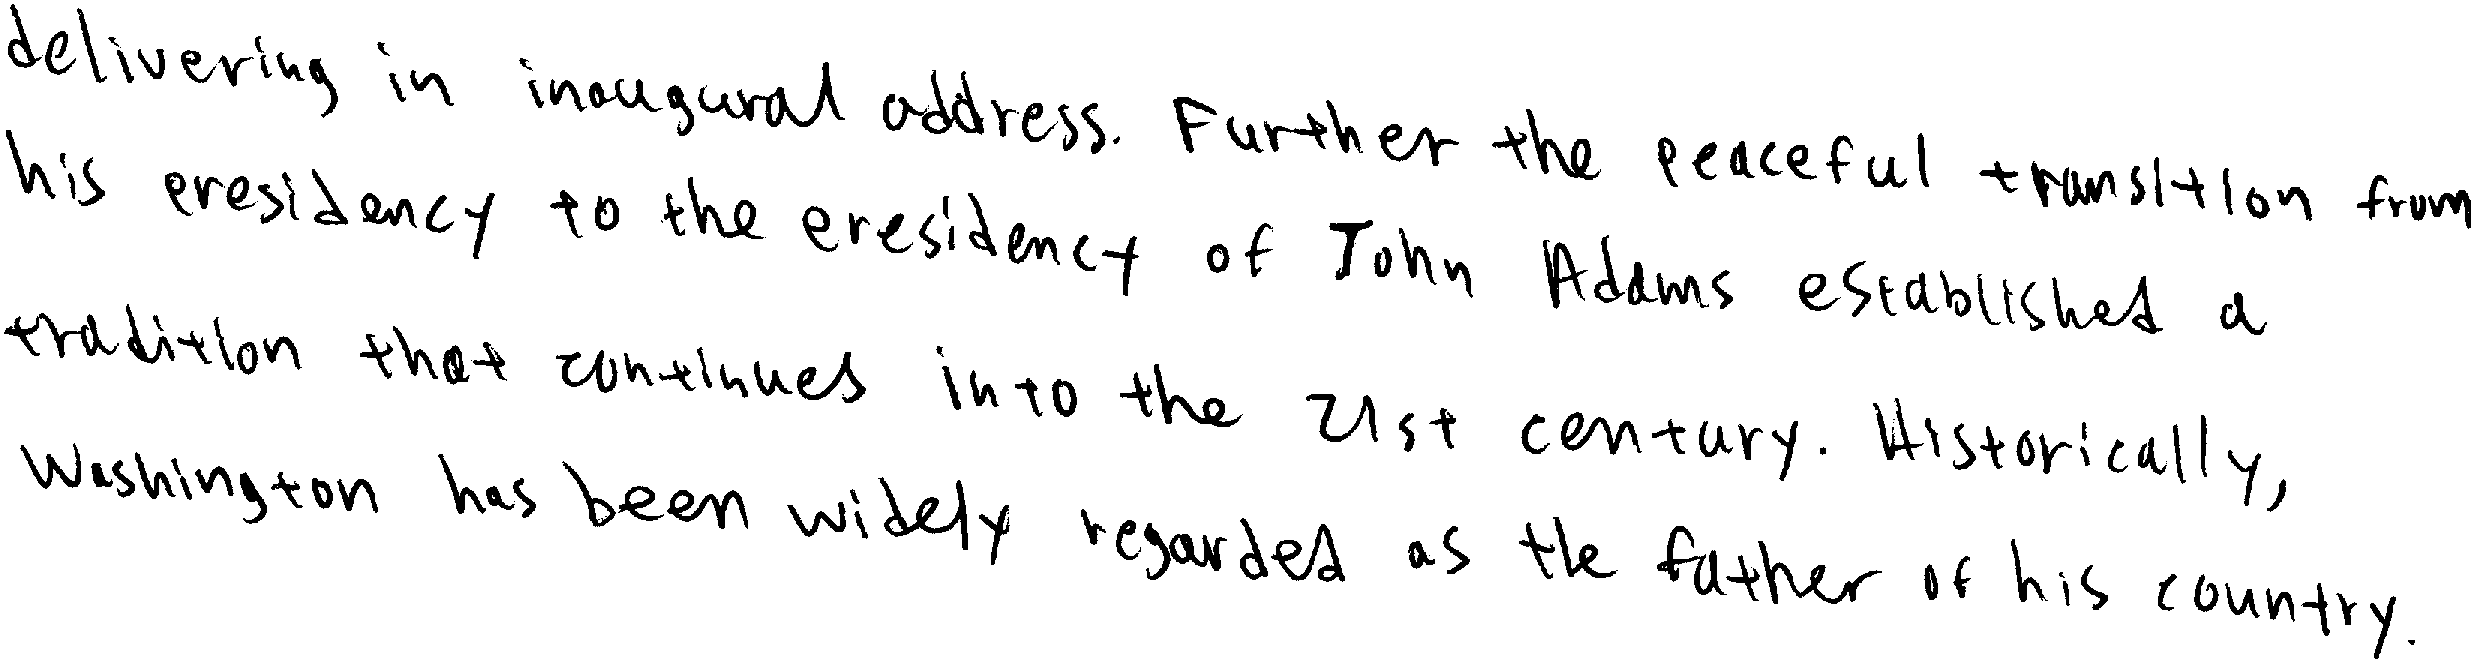 delivering in inaugural address. Further the peaceful transition from
his presidency to the presidency of John Adams established a
tradition that continues into the 21st century. Historically,
Washington has been widely regarded as the father of his country.